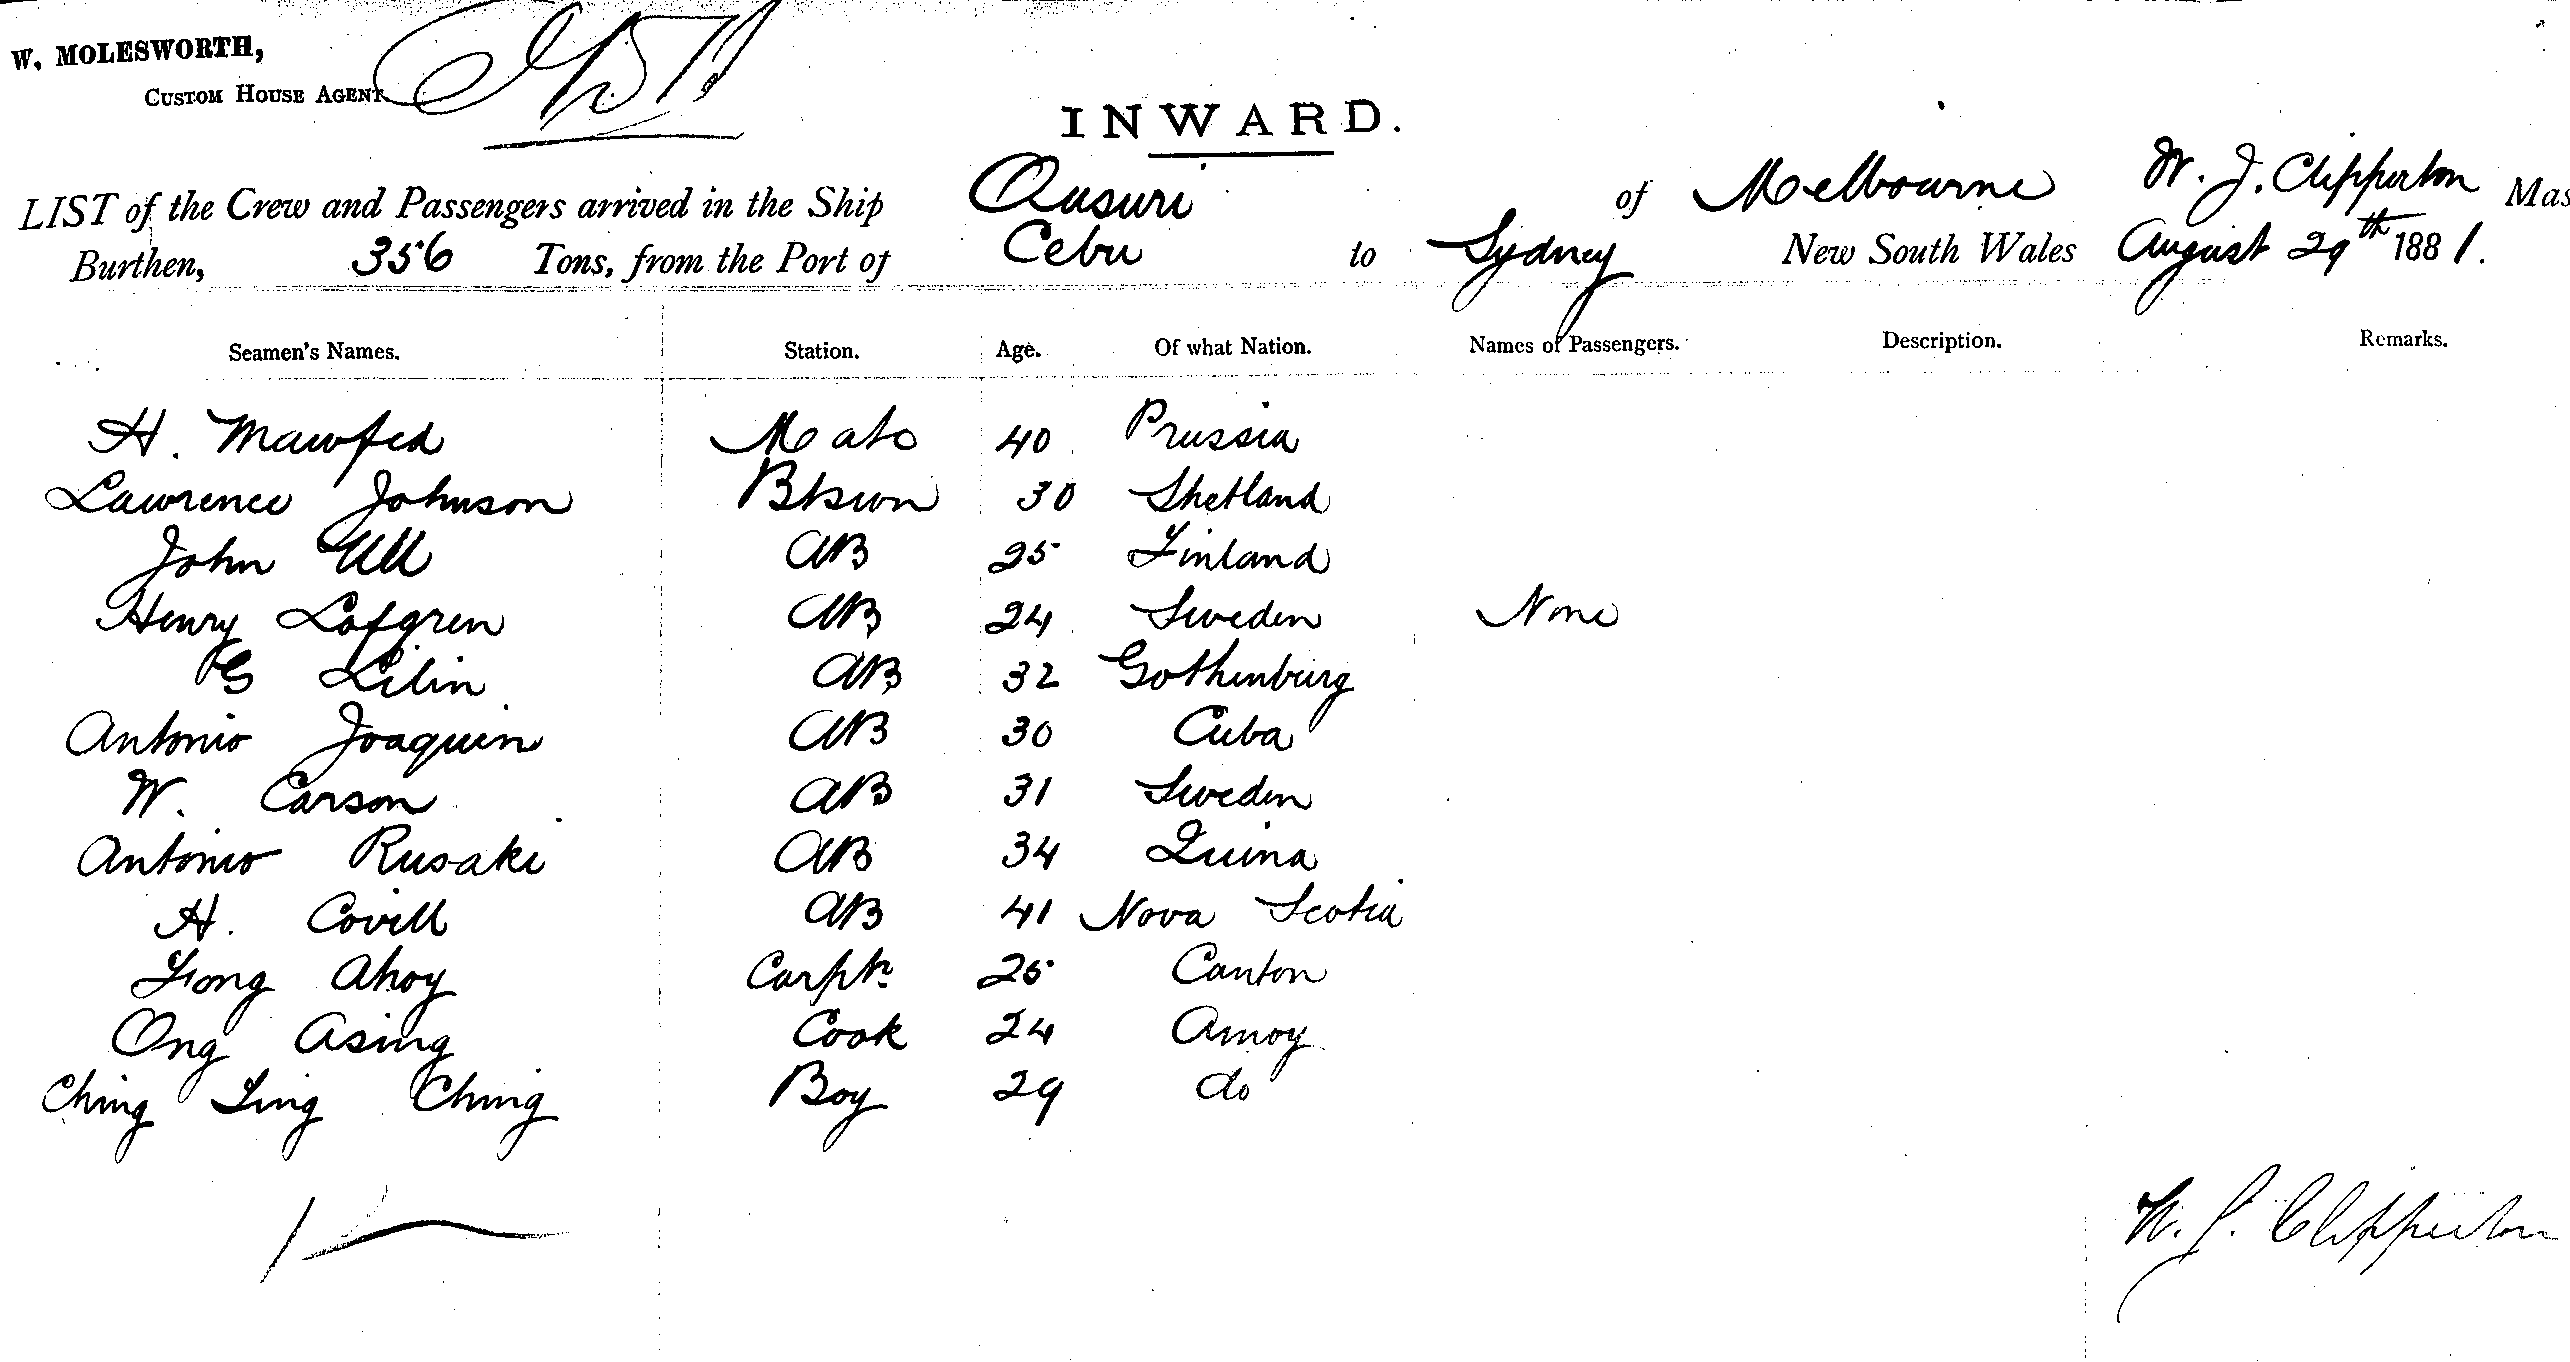 W. MOLESWORTH,
CUSTOM HOUSE AGENT.
INWARD.
LIST of the Crew and Passengers arrived in the Ship Ausuri of Melbourne W. J. Clipperton Mas
Burthen, 356 Tons, from the Port of Cebu to Sydney New South Wales August 29th 1881.
Seamen's Names. Station. Age. Of what Nation. Names of Passengers. Description. Remarks.
H. Mate 40 Prussia
Lawrence Johnson 30 Shetland
John Ull AB 25 Finland
Henry Lofgren AB 24 Sweden None
Lilin AB 32 Gothenburg
Antonio Joaquin AB 30 Cuba
W. Carson AB 31 Sweden
Antonio Rusaki AB 34
H. Covill AB 41 Nova Scotia
Fong Ahoy Carptr 25 Canton
Ong Asing Cook 24 Amoy
Ching Ling Ching Boy 29 do
W. J. Clipperton